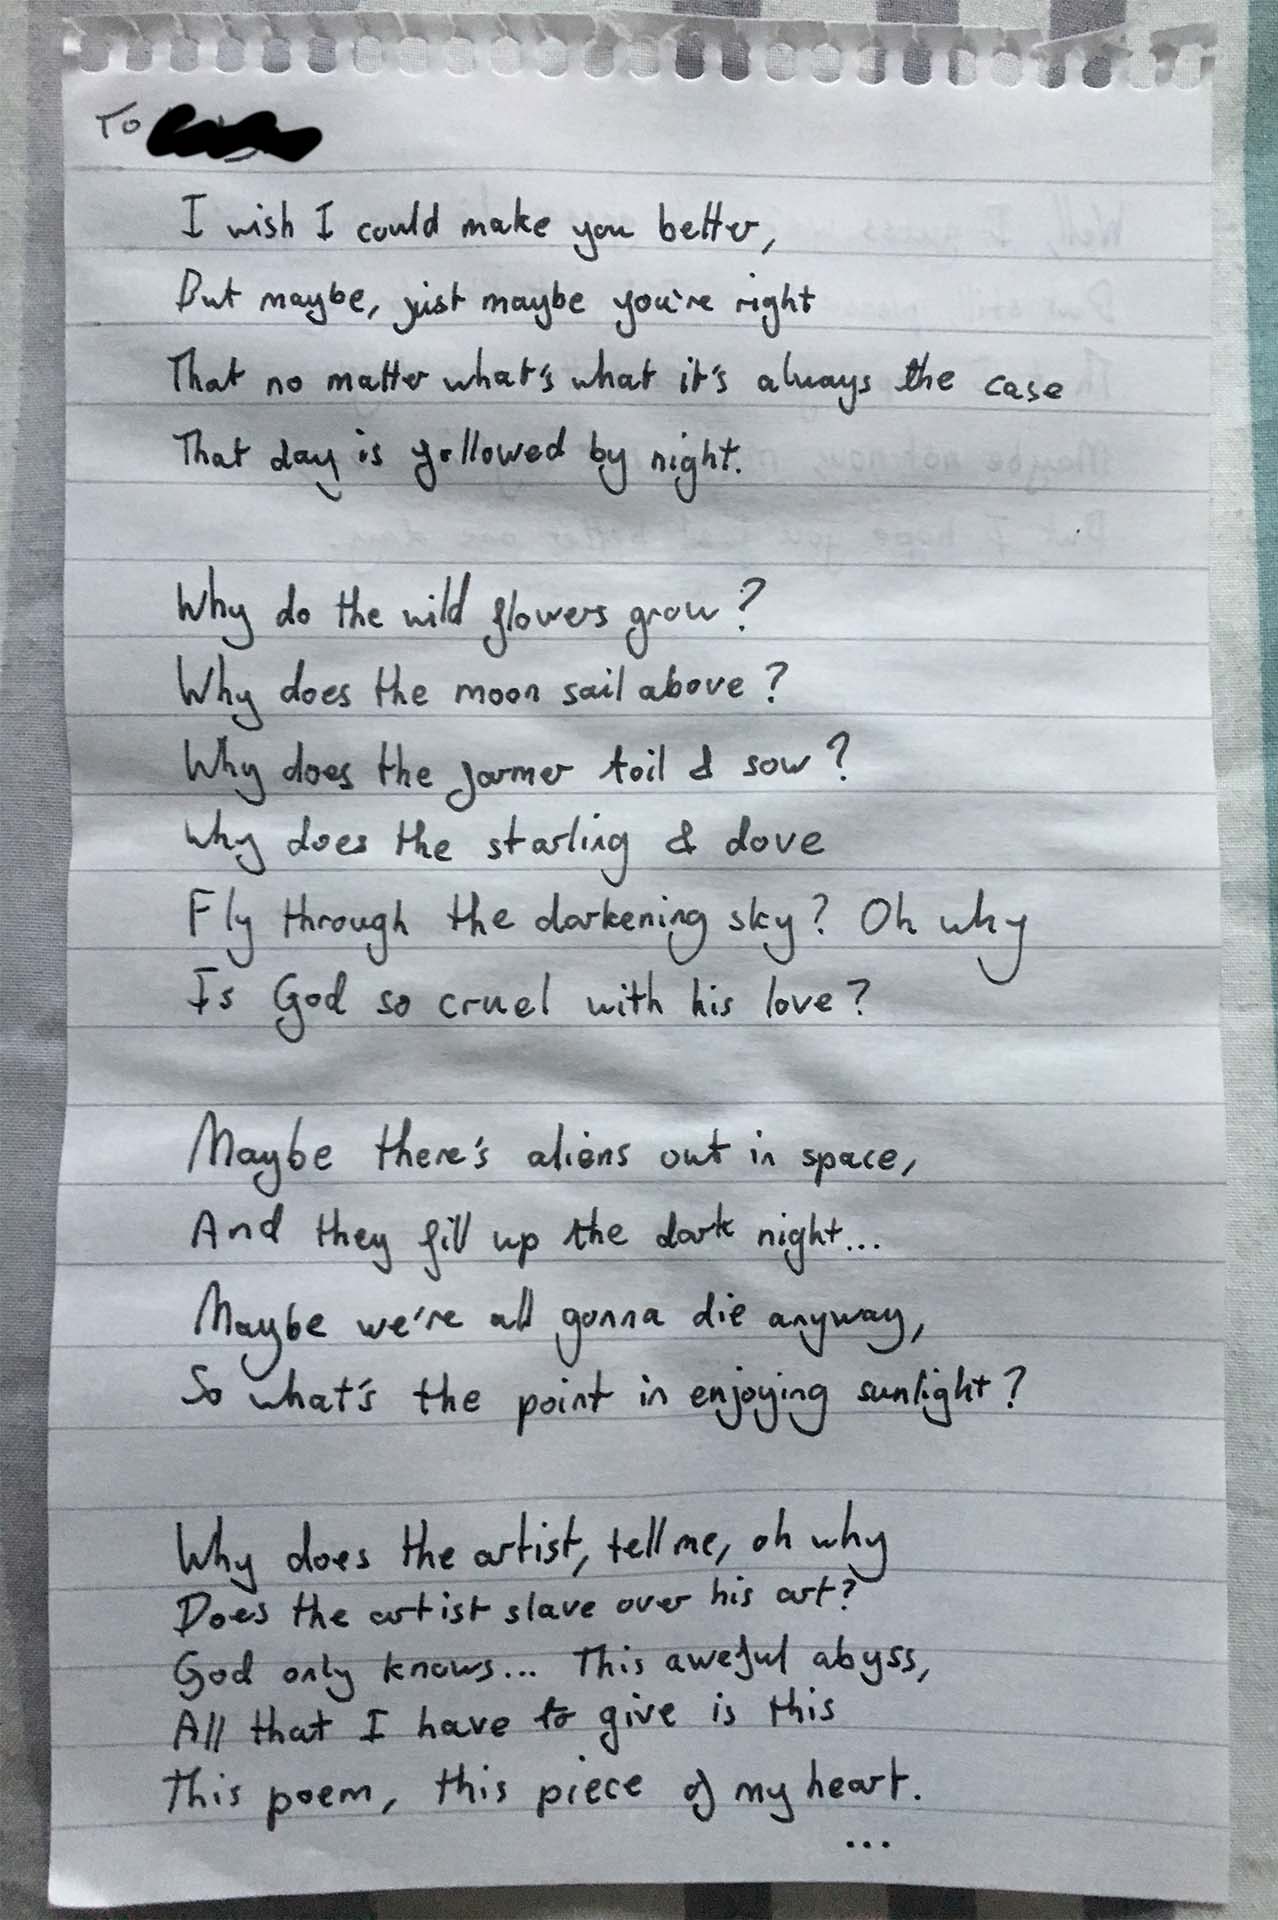 To
I wish I could make you better,
But maybe, just maybe you're right
That no matter what's what it's always the case
That day is followed by night.
Why do the wild flowers grow?
Why does the moon sail above?
Why does the farmer toil & sow?
Why does the starling & dove
Fly through the darkening sky? Oh why
Is God so cruel with his love?
Maybe there's aliens out in space,
And they fill up the dark night...
Maybe we're all gonna die anyway,
So what's the point in enjoying sunlight?
Why does the artist, tell me, oh why
Does the artist slave over his art?
God only knows... This aweful abyss,
All that I have to give is this
This poem, this piece of my heart.
...